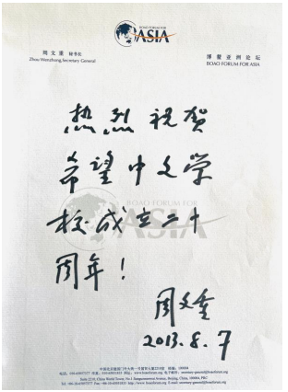 BOAO FORUM FOR
ASIA
周文重 秘书长
Zhou Wenzhong, Secretary General
博鳌亚洲论坛
BOAO FORUM FOR ASIA
热烈祝贺
希望中文学
BOAO FORUM FOR
ASIA
校成立二十
周年!
周文重
2013.8.7